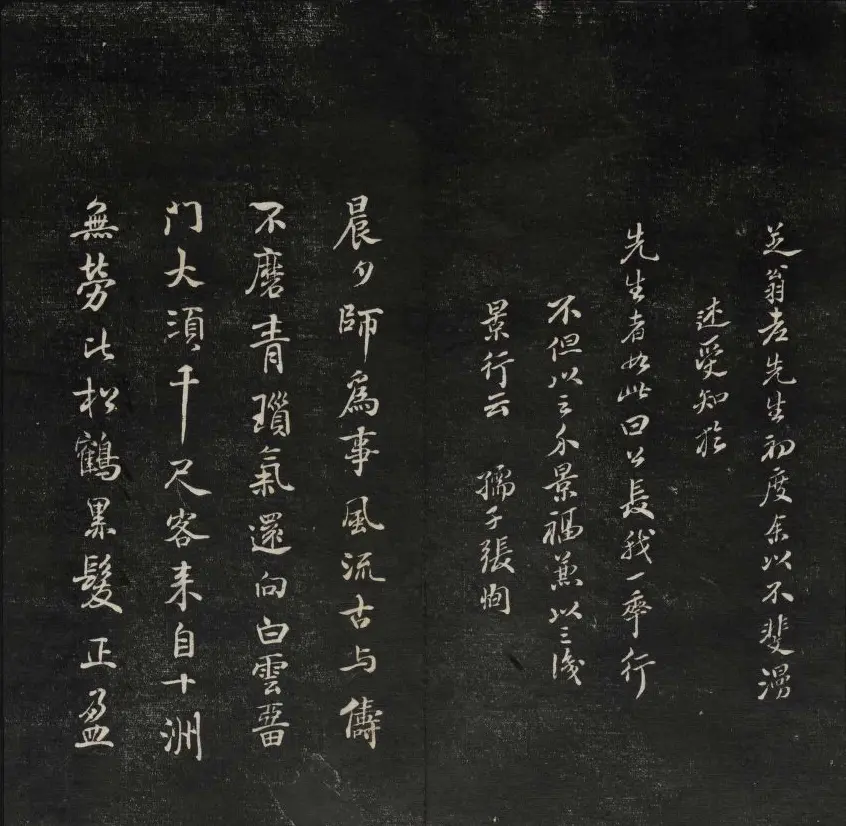 芝翁老先生初度余以不斐漫
述受知於
先生者如此曰公長我一率行
不但以之介景福兼以之識
景行云 孺子張恂
晨夕師為事風流古与儔
不磨青瑣氣還向白雲畱
門大須千尺客来自十洲
無勞比松鶴黑髮正盈